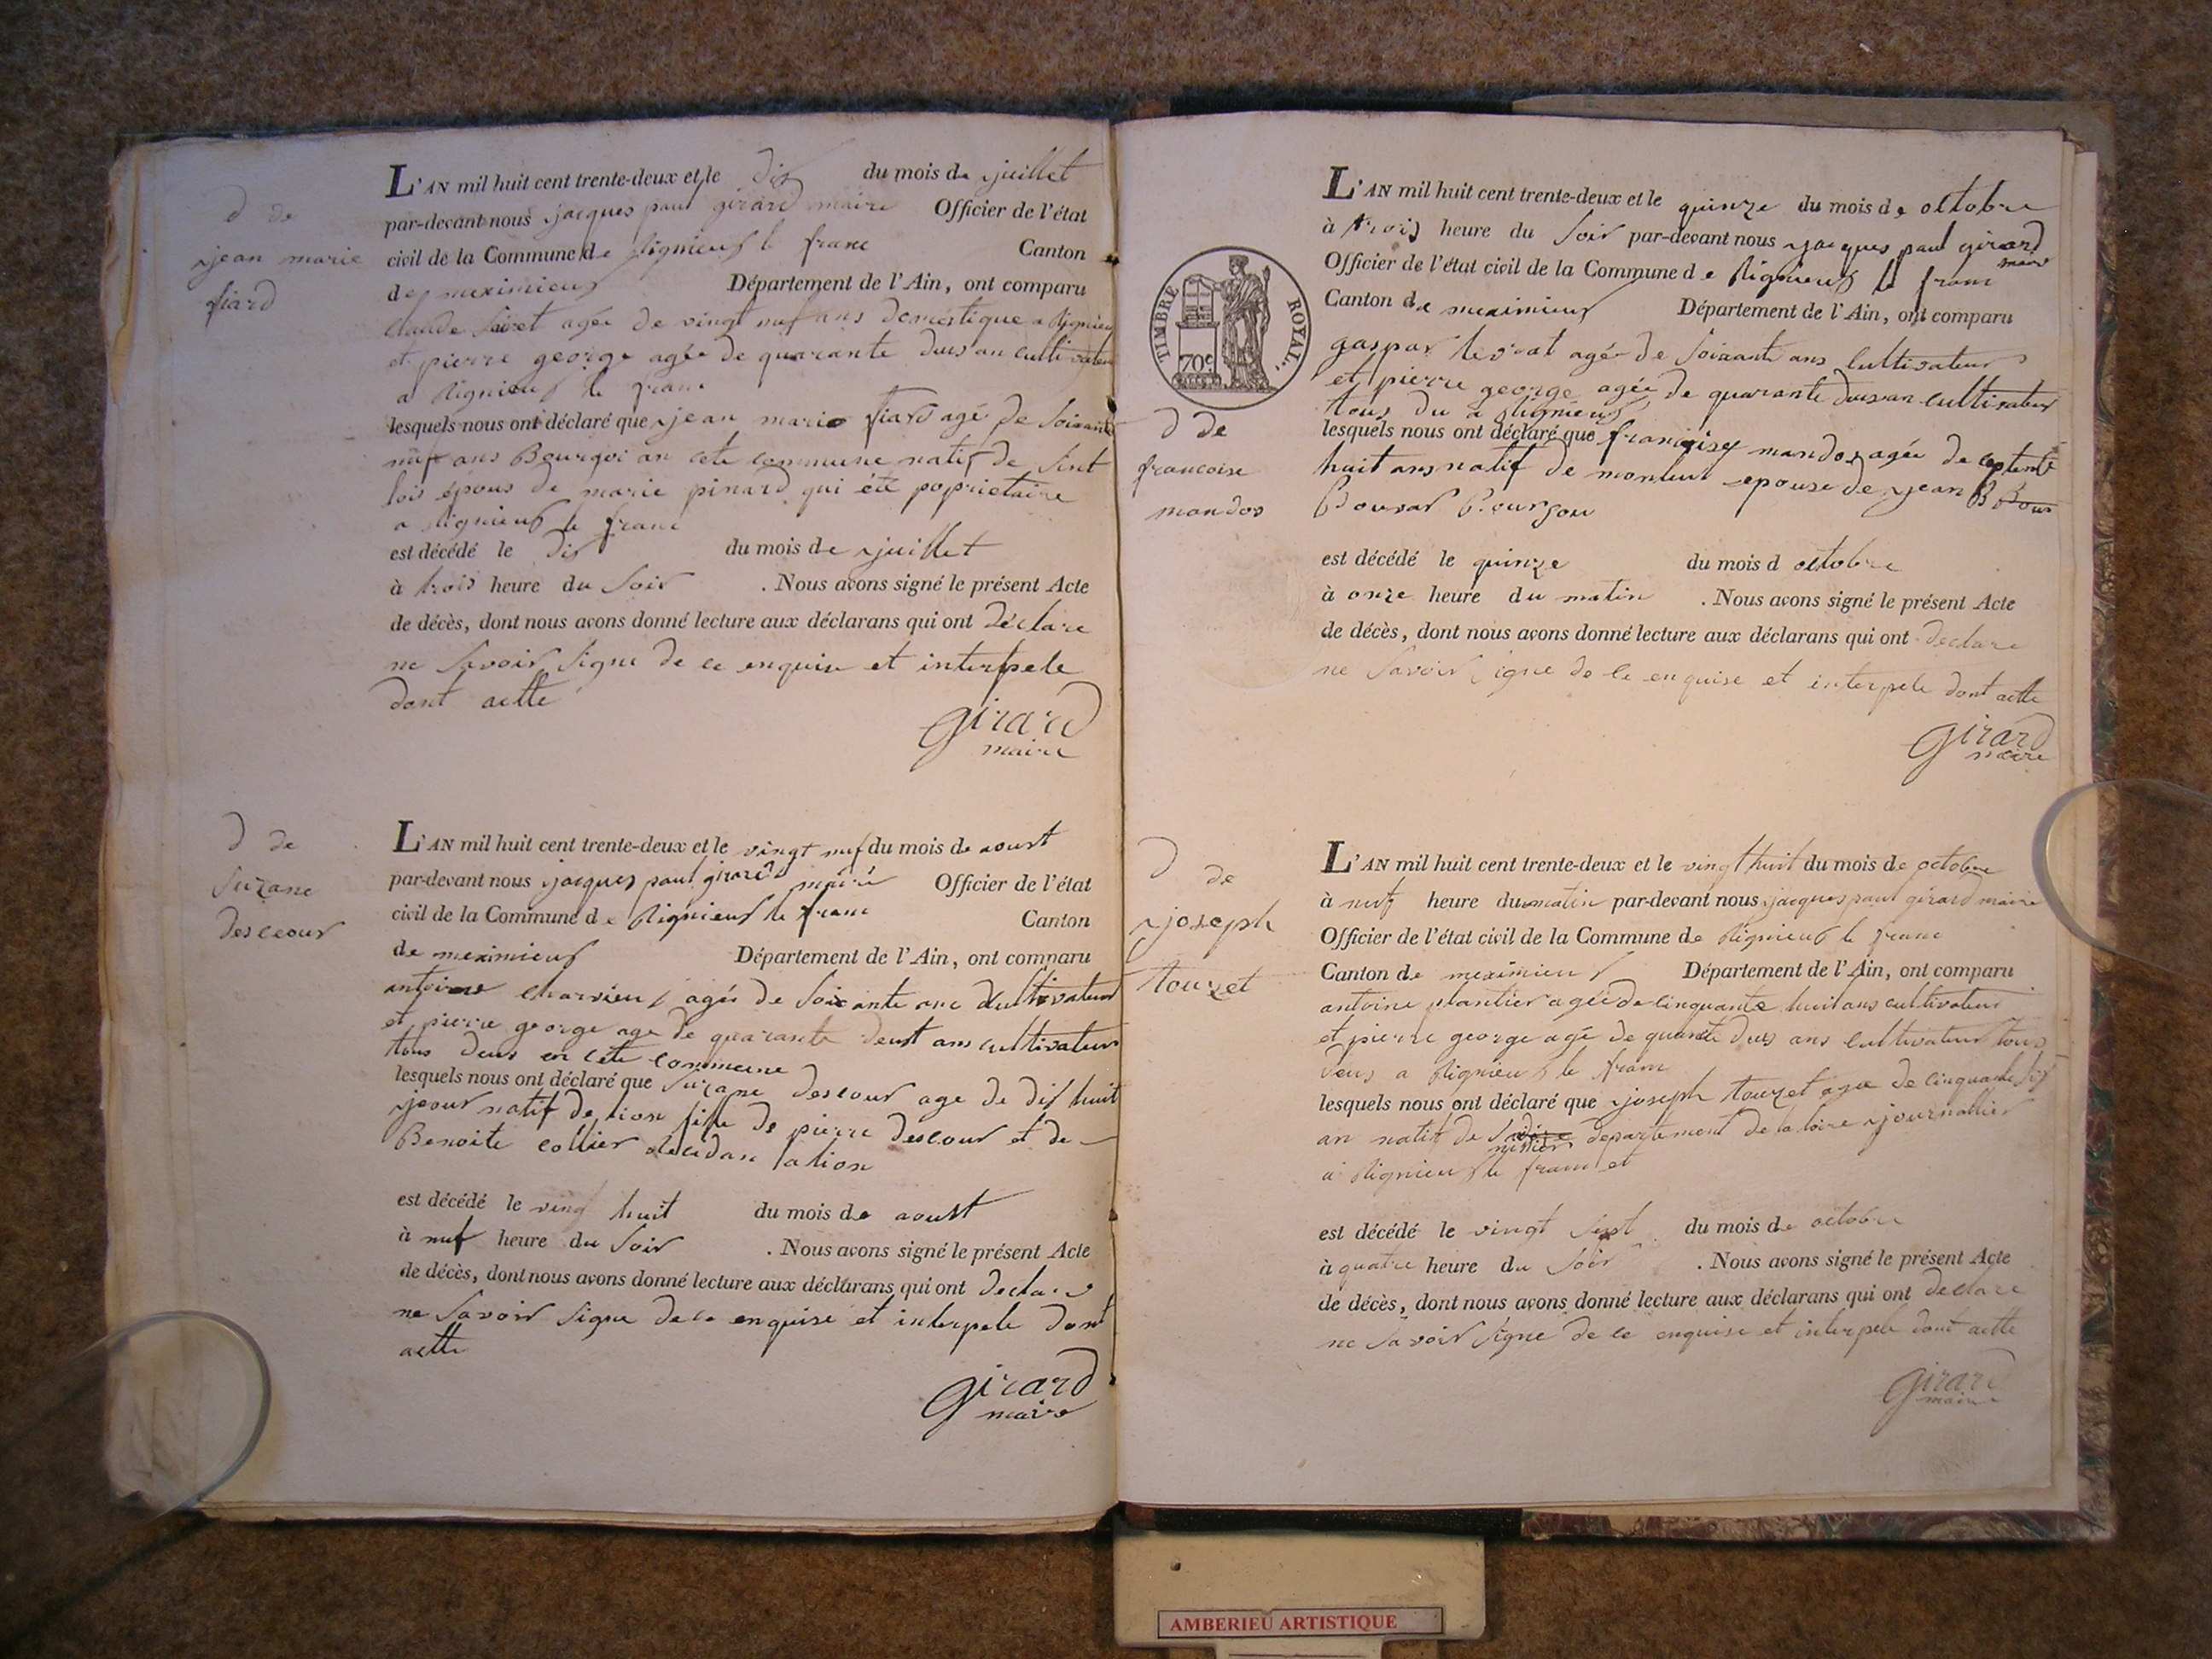 d de
jean marie
fiard
L'AN mil huit cent trente-deux et le dix du mois de juillet
par-devant nous jacques paul girard maire Officier de l'état
civil de la Commune de Rignieux le franc Canton
de meximieux Département de l'Ain, ont comparu
claude agée de vingt nuf ans domestique a Rignieu
et pierre george agée de quarante deus an cultivateur
a Rignieux le franc
lesquels nous ont déclaré que jean marie fiard agé de soixante
nuf ans Bourgoi an cete commune natif de sint
lois épous de marie pinard qui été poprietaire
a Rignieux le franc
est décédé le dix du mois de juillet
à trois heure du soir . Nous avons signé le présent Acte
de décès, dont nous avons donné lecture aux déclarans qui ont déclare
ne savoir signe de ce enquise et interpele
dont actte
girard
maire
d de
suzane
descour
L'AN mil huit cent trente-deux et le vingt nuf du mois de aoust
par-devant nous jacques paul girard maire Officier de l'état
civil de la Commune de Rignieux le franc Canton
de meximieux Département de l'Ain, ont comparu
antoine charvieux agée de soixante ans cultivateur
et pierre george age de quarante deux ans cultivateur
tous deus en cete commune
lesquels nous ont déclaré que suzane descour age de dix huit
jour natif de lion fille de pierre descour et de
Benoite collier a lion
est décédé le ving huit du mois de aoust
à nuf heure du soir . Nous avons signé le présent Acte
de décès, dont nous avons donné lecture aux déclarans qui ont declare
ne savoir signe de ce enquise et interpele dont
actte
girard
maire
TIMBRE ROYAL
70c
d de
francoise
mandos
L'AN mil huit cent trente-deux et le quinze du mois de octobre
à trois heure du soir par-devant nous jacques paul girard
maire
Officier de l'état civil de la Commune de Rignieux le franc
Canton de meximieux Département de l'Ain, ont comparu
gaspar agée de soixante ans cultivateur
et pierre george agée de quarante deus an cultivateur
tous du a Rignieux
lesquels nous ont déclaré que francoise mandos agée de septente
huit ans natif de monluel epouse de jean B
Bouvar
est décédé le quinze du mois d octobre
à onze heure du matin . Nous avons signé le présent Acte
de décès, dont nous avons donné lecture aux déclarans qui ont declare
ne savoir signe de ce enquise et interpele dont actte
girard
maire
d de
joseph
touzet
L'AN mil huit cent trente-deux et le vingt huit du mois de octobre
à nuf heure du matin par-devant nous jacques paul girard maire
Officier de l'état civil de la Commune de Rignieux le franc
Canton de meximieux Département de l'Ain, ont comparu
antoine plantier agée de cinquante huit ans cultivateur
et pierre george agé de quarente deus ans cultivateur tous
deus a Rignieux le franc
lesquels nous ont déclaré que joseph touzet age de cinquante six
an natif de departement de la loire journallier
a Rignieux le franc et
est décédé le vingt sept du mois de octobre
à quatre heure du soir . Nous avons signé le présent Acte
de décès, dont nous avons donné lecture aux déclarans qui ont declare
ne savoir signe de ce enquise et interpele dont actte
girard
maire
AMBERIEU ARTISTIQUE